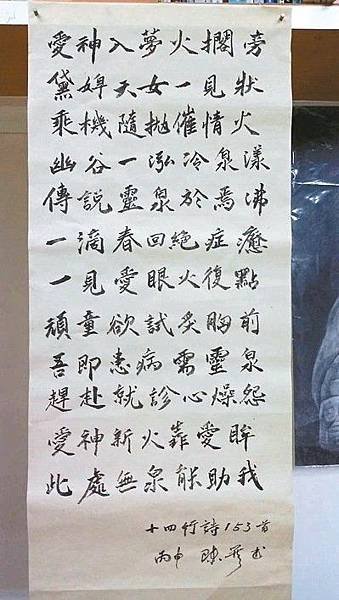 愛神入夢火擱旁
黛婢天女一見狀
乘機隨拋催情火
幽谷一泓冷泉漾
傳說靈泉於焉沸
一滴春回絕症癒
一見愛眼火復點
頑童欲試炙胸前
吾即患病需靈泉
趕赴就診心燥怨
愛神新火靠愛眸
此處無泉能助我
十四行詩153首
丙申 陳